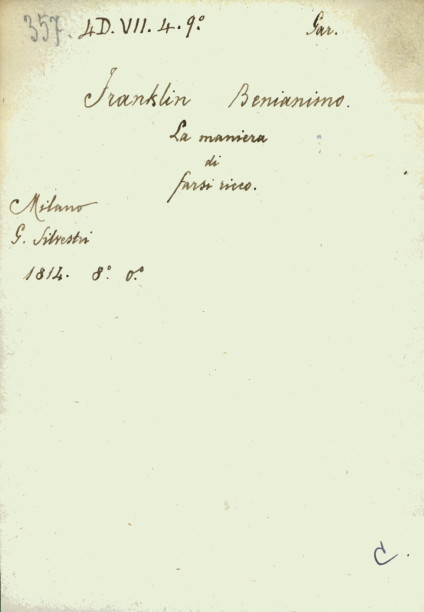 357. 4D. VII. 4. 9º Gar.
Franklin Beniamino.
La maniera
di
farsi ricco.
Milano
G. Silvestri
1814. 8º 0.º
C.